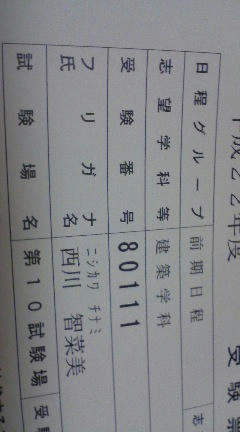 平成22年度 受験票
日程グループ 前期日程 志
志望学科等 建築学科
受験番号 80111
フリガナ ニシカワ チナミ
氏名 西川 智菜美
試験場名 第10試験場 受験